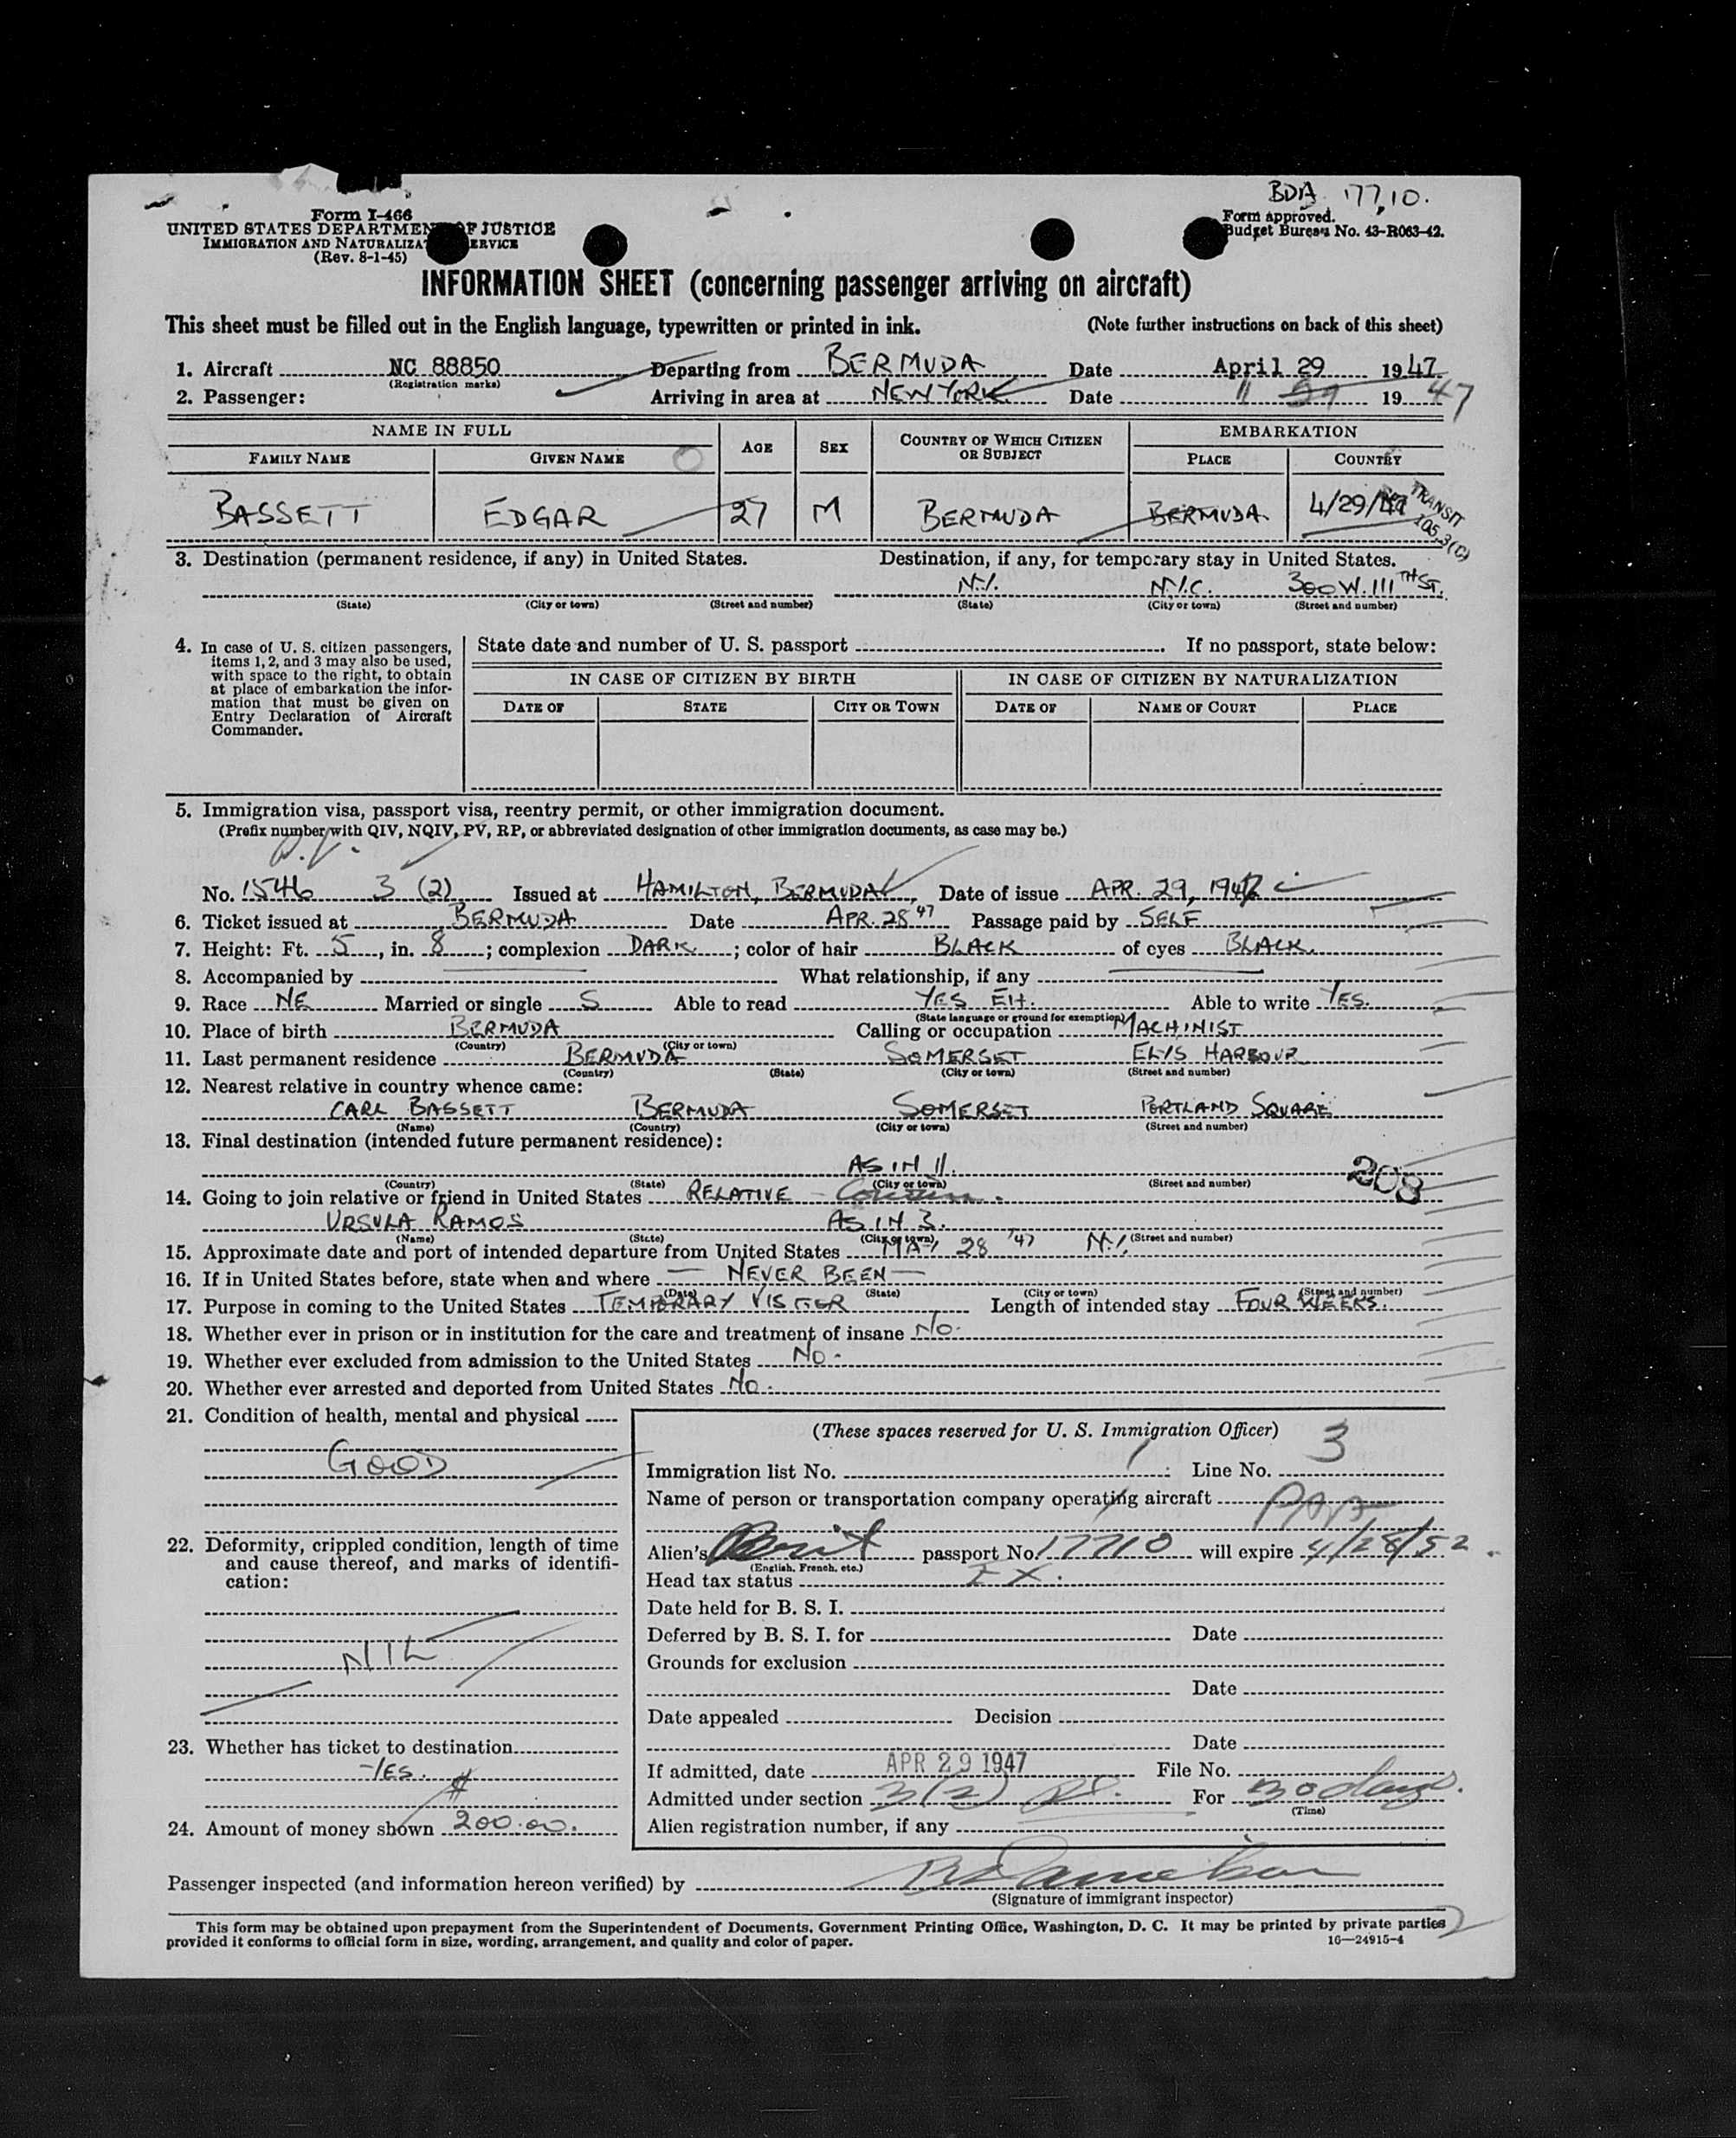 BDA 17710.
Form I-466
UNITED STATES DEPARTMENT OF JUSTICE
IMMIGRATION AND NATURALIZATION SERVICE
(Rev. 8-1-45)
Form approved.
Budget Bureau No. 43-R063-42.
INFORMATION SHEET (concerning passenger arriving on aircraft)
This sheet must be filled out in the English language, typewritten or printed in ink. (Note further instructions on back of this sheet)
1. Aircraft NC 88850 Departing from BERMUDA Date April 29 1947
(Registration marks)
2. Passenger: Arriving in area at NEW YORK Date " 29 1947
NAME IN FULL AGE SEX COUNTRY OF WHICH CITIZEN OR SUBJECT EMBARKATION
FAMILY NAME GIVEN NAME PLACE COUNTRY
BASSETT EDGAR 27 M BERMUDA BERMUDA 4/29/47
TRANSIT
105.3(C)
3. Destination (permanent residence, if any) in United States. Destination, if any, for temporary stay in United States.
N.Y. N.Y.C. 300 W. 111TH ST.
(State) (City or town) (Street and number) (State) (City or town) (Street and number)
4. In case of U. S. citizen passengers, items 1, 2, and 3 may also be used, with space to the right, to obtain at place of embarkation the information that must be given on Entry Declaration of Aircraft Commander.
State date and number of U. S. passport If no passport, state below:
IN CASE OF CITIZEN BY BIRTH IN CASE OF CITIZEN BY NATURALIZATION
DATE OF STATE CITY OR TOWN DATE OF NAME OF COURT PLACE
5. Immigration visa, passport visa, reentry permit, or other immigration document.
(Prefix number with QIV, NQIV, PV, RP, or abbreviated designation of other immigration documents, as case may be.)
P.V.
No. 1546 3 (2) Issued at HAMILTON, BERMUDA Date of issue APR. 29, 1947
6. Ticket issued at BERMUDA Date APR. 28 47 Passage paid by SELF
7. Height: Ft. 5, in. 8; complexion DARK; color of hair BLACK of eyes BLACK.
8. Accompanied by What relationship, if any
9. Race NE Married or single S Able to read YES EH. Able to write YES.
(State language or ground for exemption)
10. Place of birth BERMUDA Calling or occupation MACHINIST
(Country) (City or town)
11. Last permanent residence BERMUDA SOMERSET ELYS HARBOUR
(Country) (State) (City or town) (Street and number)
12. Nearest relative in country whence came:
CARL BASSETT BERMUDA SOMERSET PORTLAND SQUARE
(Name) (Country) (City or town) (Street and number)
13. Final destination (intended future permanent residence):
AS IN 11. 208
(Country) (State) (City or town) (Street and number)
14. Going to join relative or friend in United States RELATIVE - Cousin.
URSULA RAMOS AS IN 3.
(Name) (State) (City or town) (Street and number)
15. Approximate date and port of intended departure from United States MAY 28 '47 N.Y.
16. If in United States before, state when and where — NEVER BEEN —
(Date) (State) (City or town) (Street and number)
17. Purpose in coming to the United States TEMPORARY VISITOR Length of intended stay FOUR WEEKS.
18. Whether ever in prison or in institution for the care and treatment of insane NO.
19. Whether ever excluded from admission to the United States NO.
20. Whether ever arrested and deported from United States NO.
21. Condition of health, mental and physical
GOOD
22. Deformity, crippled condition, length of time and cause thereof, and marks of identification:
NIL
23. Whether has ticket to destination
YES.
24. Amount of money shown $ 200.00.
(These spaces reserved for U. S. Immigration Officer)
Immigration list No. 1 Line No. 3
Name of person or transportation company operating aircraft PAA
Alien's Brit passport No. 17710 will expire 4/28/52.
(English, French, etc.)
Head tax status EX.
Date held for B. S. I.
Deferred by B. S. I. for Date
Grounds for exclusion
Date
Date appealed Decision
Date
If admitted, date APR 29 1947 File No.
Admitted under section 3(2) For 30 days.
(Time)
Alien registration number, if any
Passenger inspected (and information hereon verified) by
(Signature of immigrant inspector)
This form may be obtained upon prepayment from the Superintendent of Documents, Government Printing Office, Washington, D. C. It may be printed by private parties
provided it conforms to official form in size, wording, arrangement, and quality and color of paper. 16—24915-4